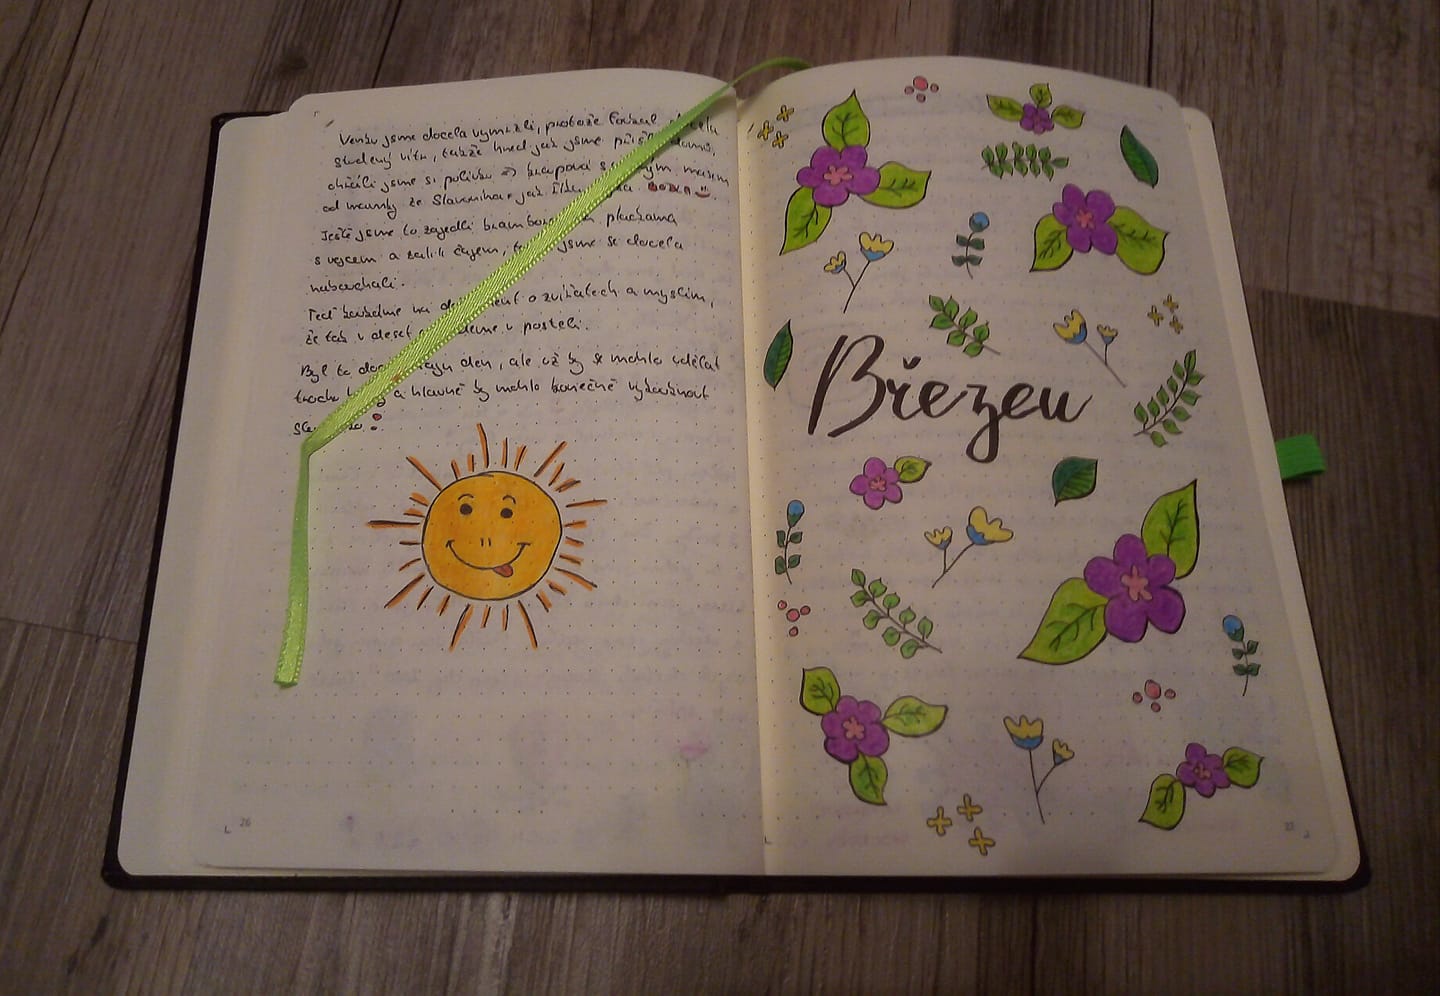 Venku jsme docela vymrzli, protože foukal docela
studený vítr, takže hned jak jsme přišli domů,
ohřáli jsme si polívku => krupová s masem
od mamky ze Slavonína
Ještě jsme to zajedli bramborovým plackama
s vejcem a zalili čajem, jsme se docela
nabouchali.
Teď koukáme na dokument o zvířatech a myslím,
že tak v deset budeme v posteli.
Byl to den, ale už by se mohlo udělat
trochu a hlavně by mohlo konečně vykouknout
Březen
26